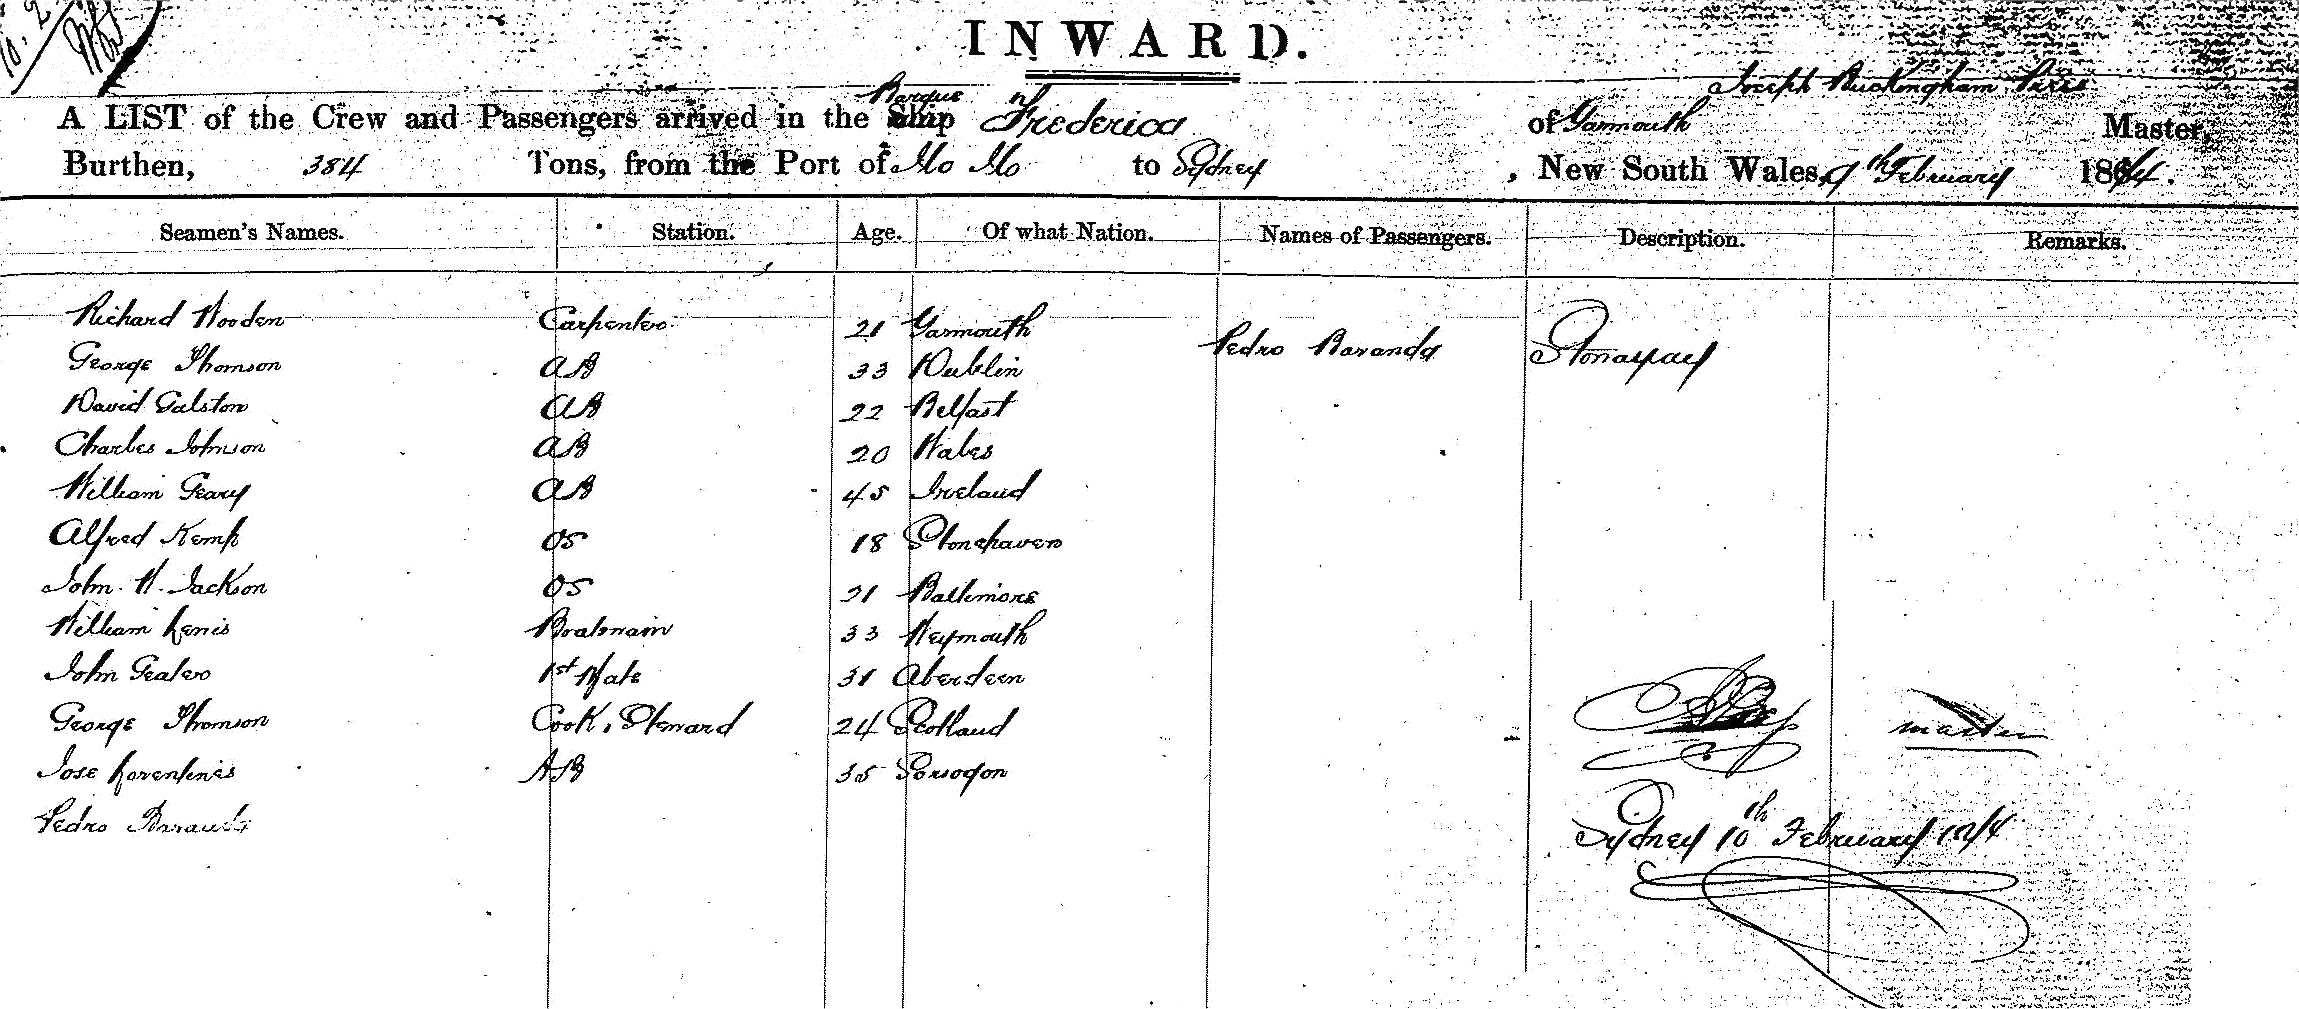 INWARD.
Barque Joseph Buckingham
A LIST of the Crew and Passengers arrived in the Ship Frederica of Yarmouth Master,
Burthen, 384 Tons, from the Port of Ilo Ilo to Sydney, New South Wales, 9th February 1874.
Seamen's Names. Station. Age. Of what Nation. Names of Passengers. Description. Remarks.
Richard Wooden Carpenter 21 Yarmouth
Pedro Baranda Stonaway
George Thomson AB 33 Dublin
David Galston AB 22 Belfast
Charles Johnson AB 20 Wales
William Geary AB 45 Ireland
Alfred Kemp OS 18 Stonehaven
John W. Jackson OS 21 Baltimore
William Lewis Boatswain 33 Weymouth
John Geater 1st Mate 31 Aberdeen
George Thomson Cook, Steward 24 Scotland
master
Jose 35 Sorsogon
Pedro Baranda
Sydney 10th February 1874